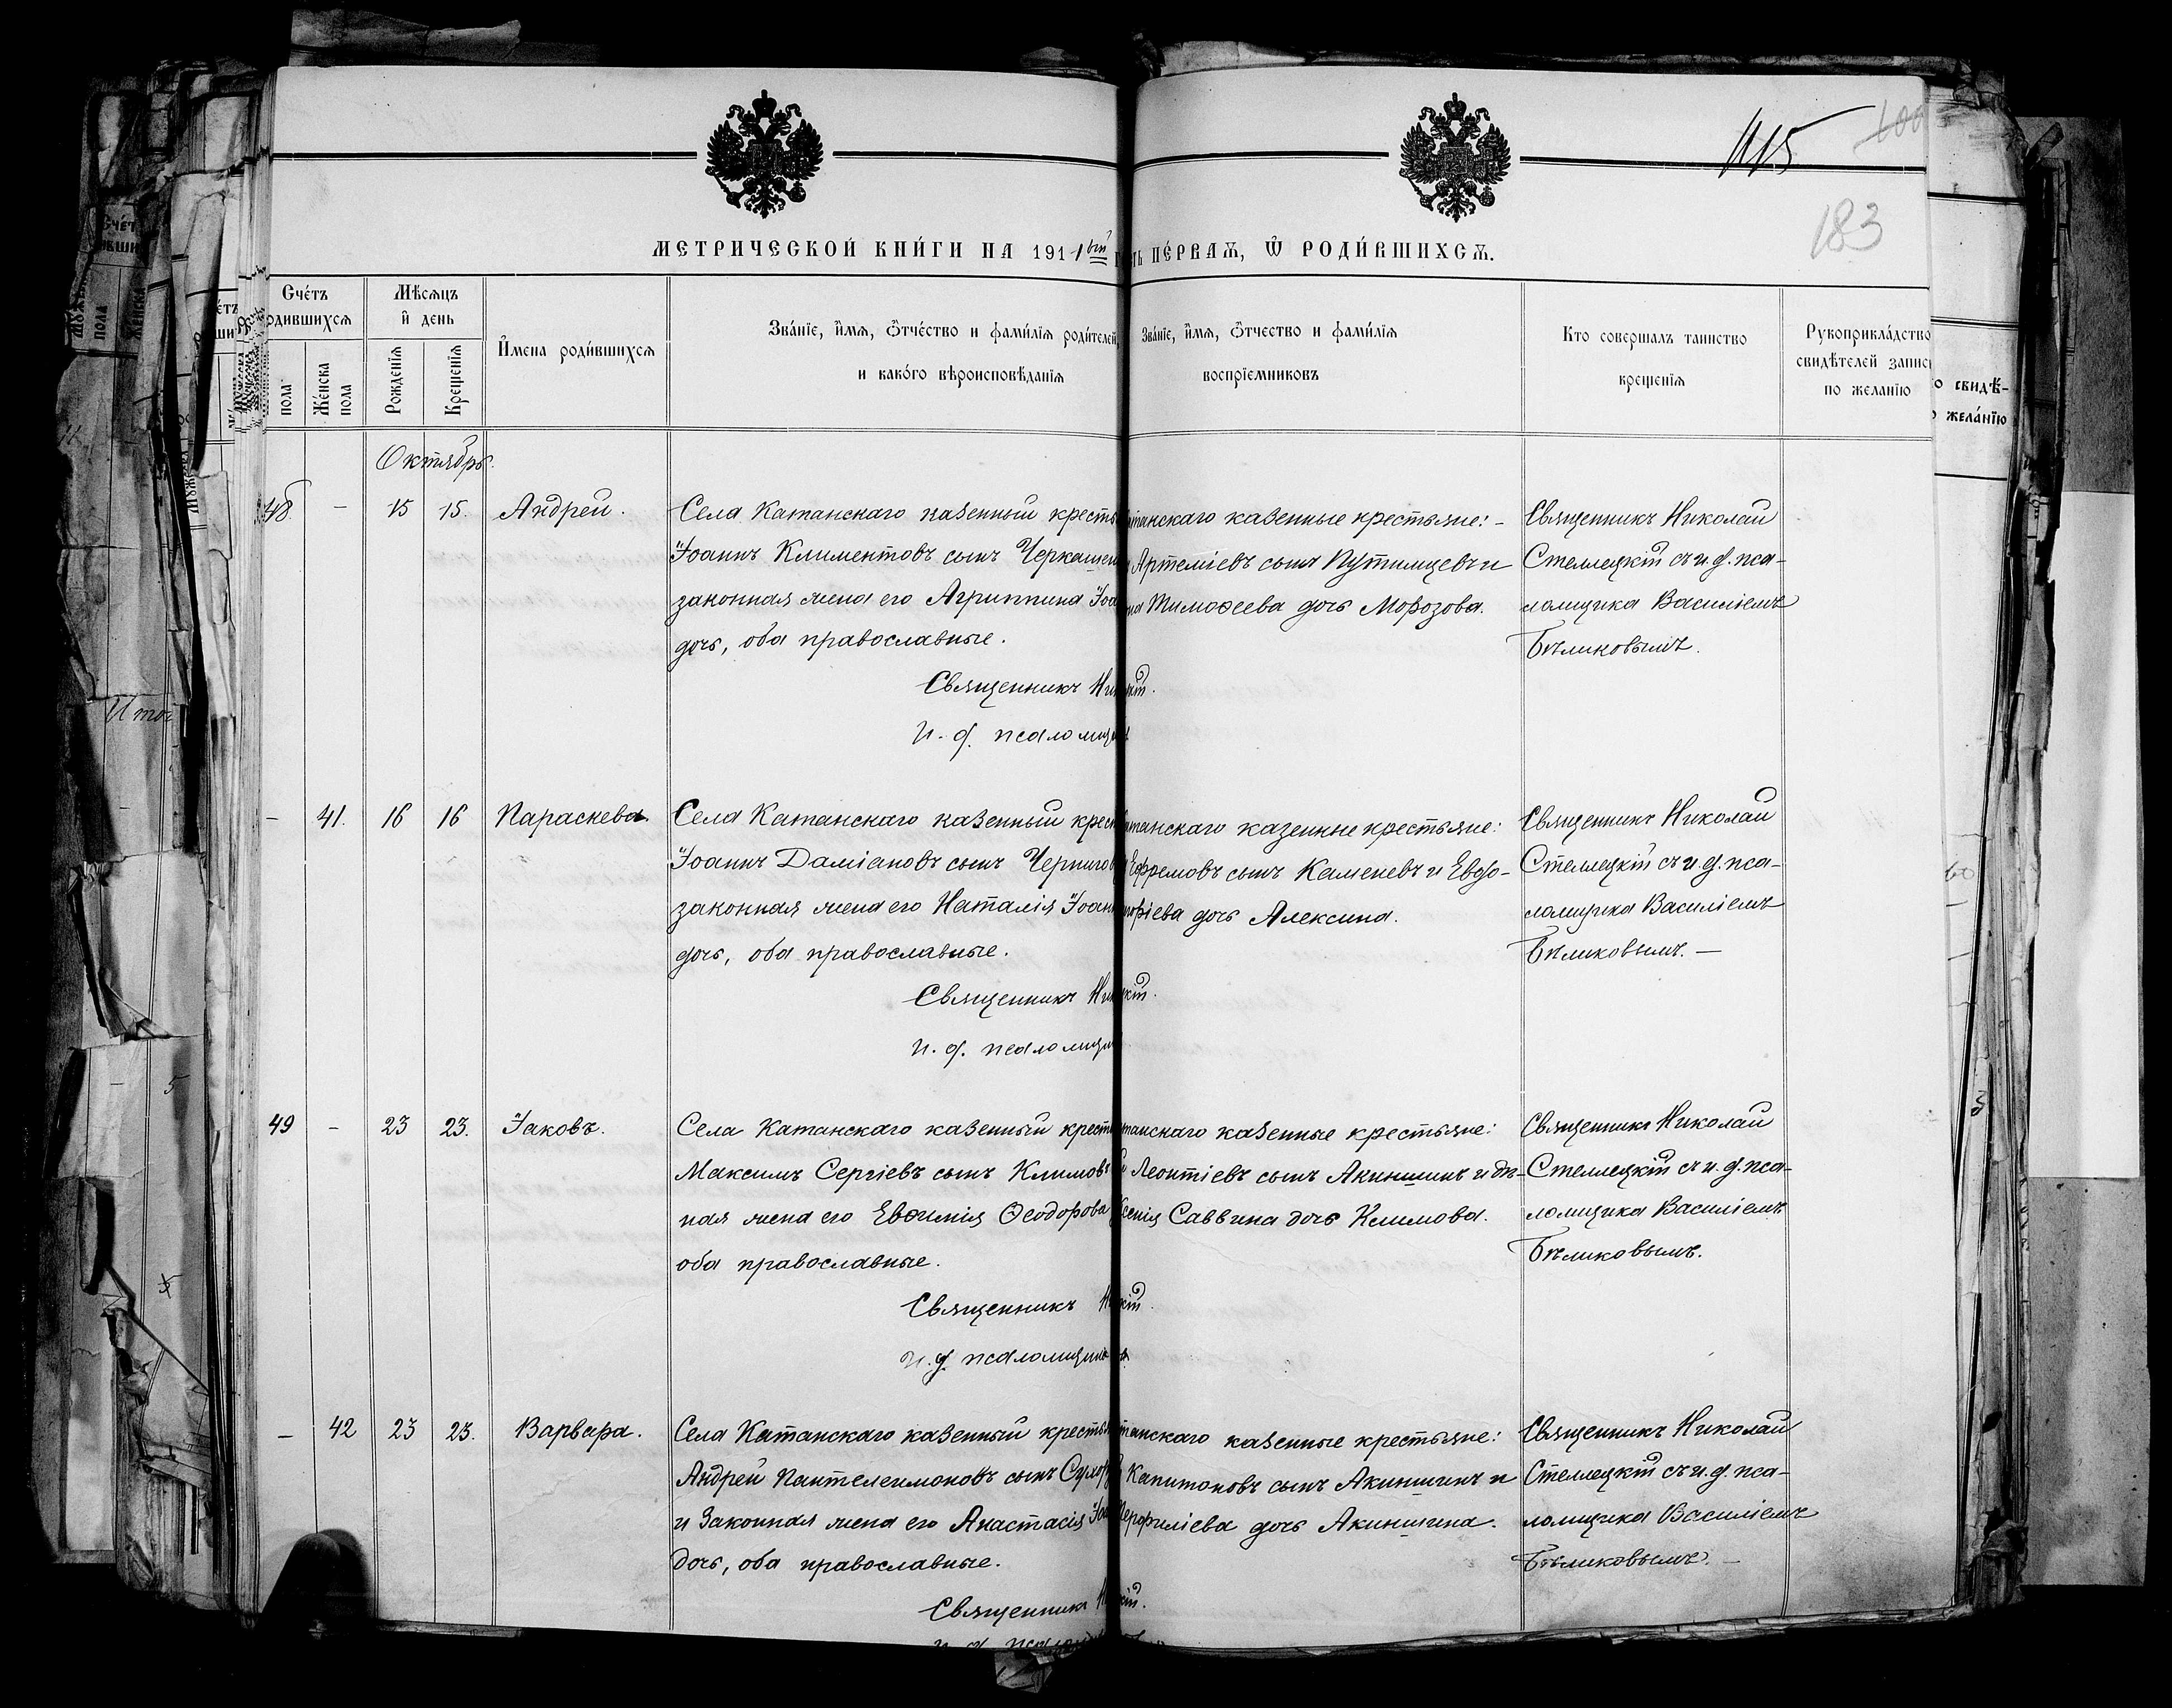 115
100
183
МЕТРИЧЕСКОЙ КНИ́ГИ НА 1911ый
ть ПЕ́РВАѦ, Ѿ РОДИ́ВШИХСѦ.
Сче́тъ
одившихсѧ
Мѣсѧцъ
и̂ день
И҆мена роди́вшихсѧ
Зва́нїе, и҆мѧ, ѻ҆́тчество и фами́лїѧ роди́телей
и како́го вѣроисповѣ́данїѧ
Зва́нїе, и҆мѧ, ѻ҆́тчество и фами́лїѧ
воспрїемниковъ
Кто совершалъ таинство
крещенїѧ
Рукоприкла́дство
свидѣтелей запис
по желанїю
пола
Же́нска пола
Рожденїѧ
Крещенїѧ
Октябрь.
48 – 15 15. Андрей.
Села Катанскаго казенный кресть
Іоаннъ Климентовъ сынъ Черкашен
законная жена его Агриппина Іоа
дочь, оба православные.
Священникъ Ни
И. д. псаломщи
танскаго казенные крестьяне: –
Артеміевъ сынъ Путимцевъ и
на Тимоѳеева дочь Морозова.
кій.
Священникъ Николай
Стеллецкій съ и. д. пса-
ломщика Василіемъ
Бѣликовымъ.
– 41. 16 16 Параскева.
Села Катанскаго казенный крест
Іоаннъ Даміановъ сынъ Чернигов
законная жена его Наталія Іоан
дочь, оба православные.
Священникъ Ни
И. д. псаломщи
танскаго казенные крестьяне:
Ефремовъ сынъ Каменевъ и Евдо-
фіева дочь Алексина.
кій.
Священникъ Николай
Стеллецкій съ и. д. пса-
ломщика Василіемъ
Бѣликовымъ. –
49 – 23 23. Іаковъ.
Села Катанскаго казенный крест
Максимъ Сергіевъ сынъ Климовъ
ная жена его Евѳимія Ѳеодорова
оба православные.
Священникъ Н
И. д. псаломщик
танскаго казенные крестьяне:
Леонтіевъ сынъ Акиншинъ и дѣ-
сенія Саввина дочь Климова.
кій.
Священникъ Николай
Стеллецкій съ и. д. пса-
ломщика Василіемъ
Бѣликовымъ.
– 42 23 23. Варвара.
Села Катанскаго казенный кресть
Андрей Пантелеимоновъ сынъ
и законная жена его Анастасія Іоа
дочь, оба православные.
Священникъ Н
и д псалом
танскаго казенные крестьяне:
Капитоновъ сынъ Акиншинъ и
Перфиліева дочь Акиншина.
кій.
Священникъ Николай
Стеллецкій съ и. д. пса-
ломщика Василіемъ
Бѣликовымъ. –
о свидѣ́-
жела́нїю